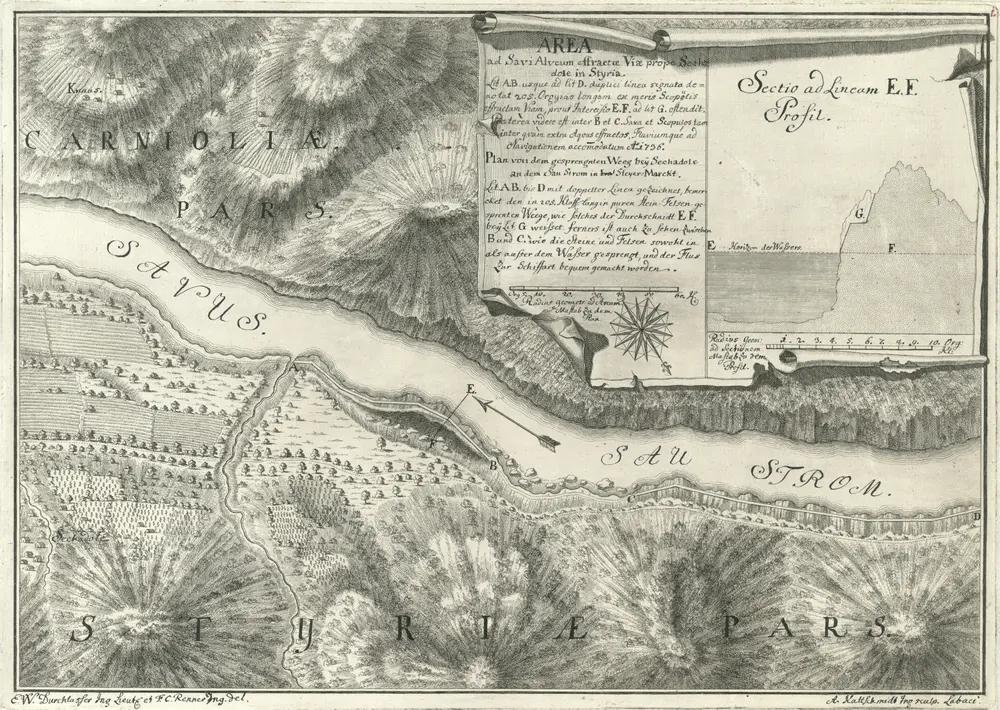 AREA
ad Savi Alveum effractæ Viæ prope Secha
dole in Styria.
Lit A.B. usque ad lit D. duplici linea signata de=
notat 205. Orgyias longam ex meris Scopulis
effractam Viam, prout Intersectio E.F. ad lit G. ostendit.
Præterea videre est inter B et C. Saxa et Scopulos tam
intra quam extra Aquas effractos, Fluviumque ad
Navigationem accomodatum Aº 1736.
Plan von dem gesprengten Weeg beÿ Sechadole
an dem Sau Strom in Steyer Marckt.
Lit. A.B. bis D mit doppelter Linea gezeichnet, bemer
cket den in 205. Klaff. lang in puren Stein Felsen ge=
sprengten Weege, wie solches der Durchschnidt E F
beÿ Lit G weiset, ferners ist auch zu sehen zwischen
B und C. wie die Steine und Felsen sowohl in
als ausser dem Wasser gesprengt, und der Flus
zur Schiffart bequem gemacht worden.
10. 20. 30. 40.
Radius Geometr: ad Aream
Mastab zu dem
Plan
Sectio ad Lineam E.F.
Profil.
G.
E Horizon des Wassers.
F.
1. 2. 3. 4. 5. 6. 7. 8. 9. 10. Org:
Kl:
Radius Geom:
ad Sectionem
Mastab zu dem
Profil.
Knaus.
CARNIOLIÆ
PARS.
SAVUS.
A
E.
F
B
C
D
SAU STROM.
Sechadole
STYRIÆ PARS.
E.W. Durchlasser Ing Lieut et F.C. Renner Ing. del.
A. Kaltschmidt Ing sculp. Labaci.